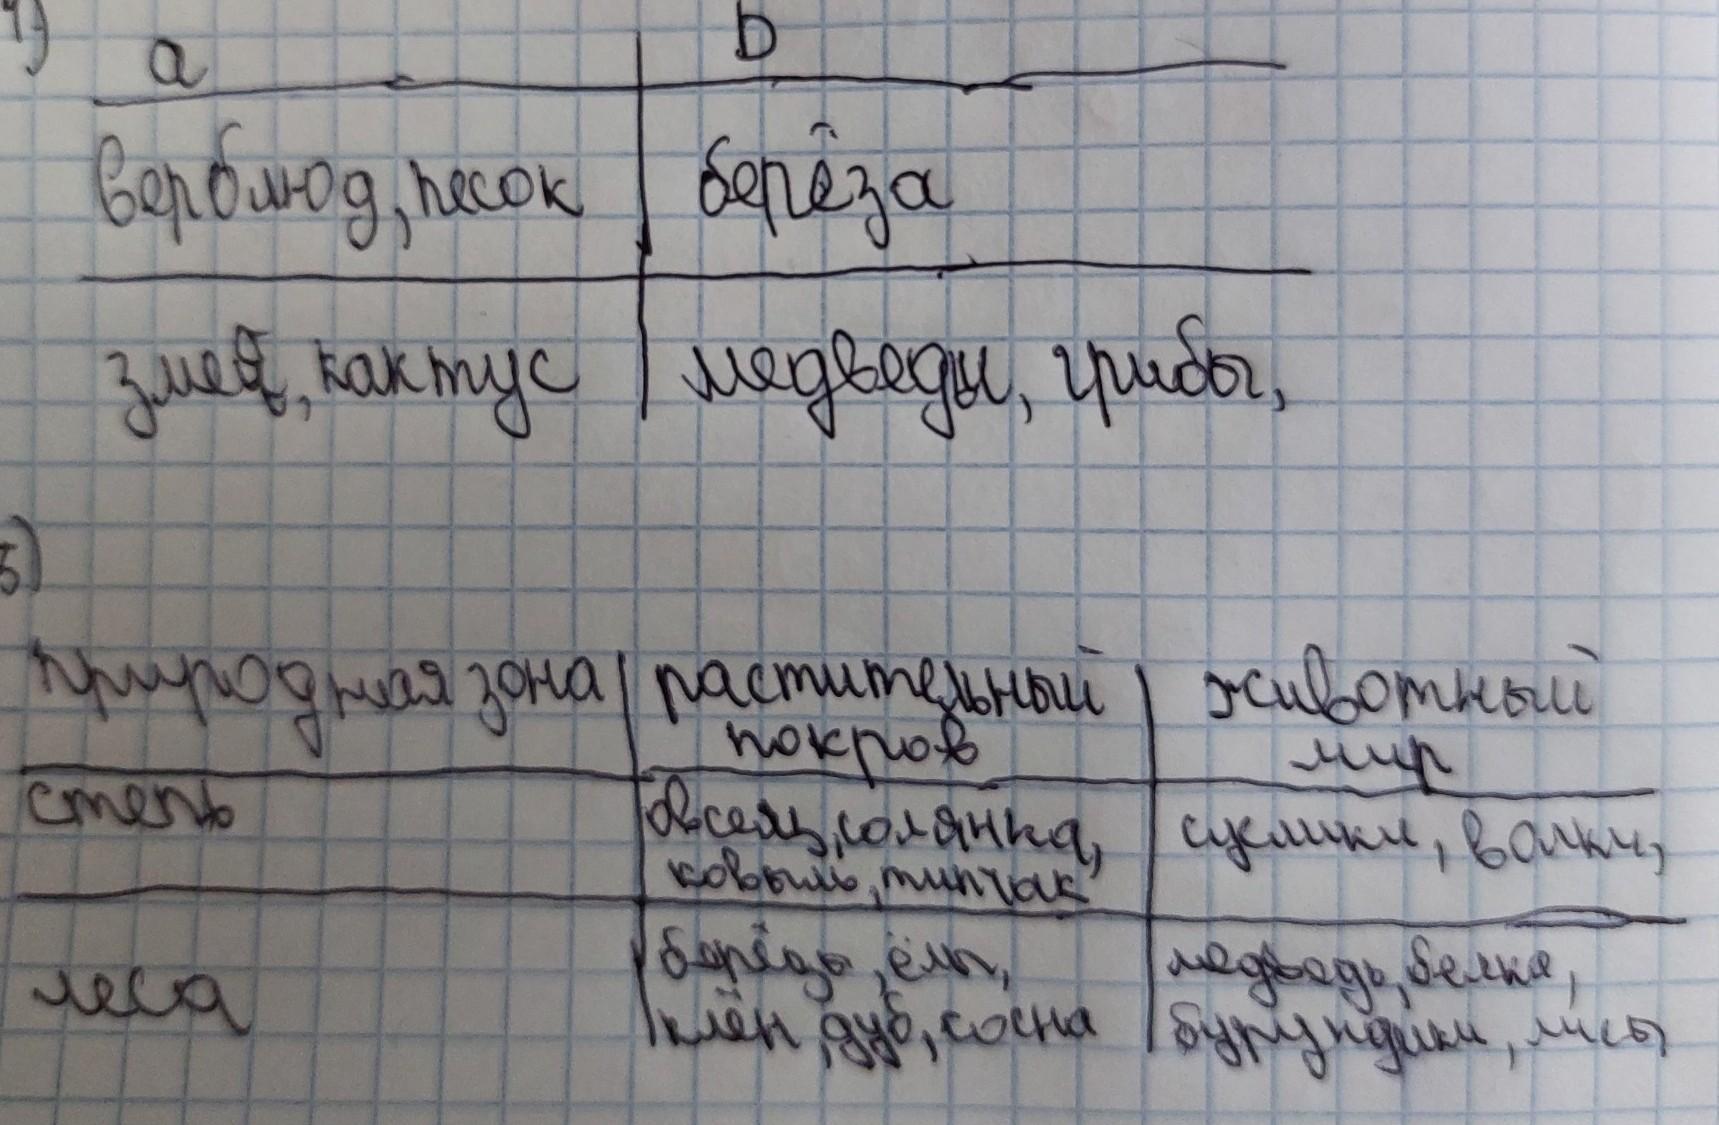 4)
a b
верблюд, песок берёза
змея, кактус медведи, грибы,
5)
природная зона растительный животный
покров мир
степь овсец, солянка, суслики, волки,
ковыль, типчак
берёзы, ёлы, медведь, белка,
леса
клён, дуб, сосна бурундики, лисы